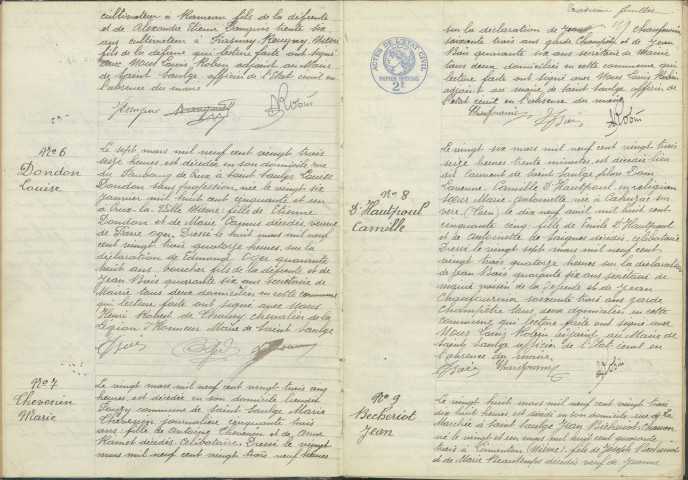 cultivateur à Rameau fils de la défunte
et de Alexandre Etienne trente six
ans cultivateur à Frasnay Reugny Nièvre
fils de la défunte qui lecture faite ont signé
avec Nous Louis Robin adjoint au Maire
de Saint Saulge officier de l'Etat civil en
l'absence du maire
Robin
No 6
Dondon
Louise
Le sept mars mil neuf cent vingt trois
seize heures, est décédée en son domicile rue
du Faubourg de Crux à Saint Saulge Louise
Dondon sans profession, née le vingt six
janvier mil huit cent cinquante et un
à Crux-la-Ville Nièvre: fille de Etienne
Dondon et de Marie Camus décédés, veuve
de Pierre Oger. Dressé le huit mars mil neuf
cent vingt trois quatorze heures sur la
déclaration de Edmond Oger quarante
huit ans, boucher fils de la défunte et de
Jean Bais quarante six ans secrétaire de
Mairie tous deux domiciliés en cette commune
qui lecture faite ont signé avec Nous
Henri Robert de Chalvry chevalier de la
Légion d'Honneur Maire de Saint Saulge
Bais Oger
No 7
Thévenin
Marie
Le vingt mars mil neuf cent vingt trois cinq
heures, est décédée en son domicile lieudit
commune de Saint Saulge Marie
Thévenin journalière cinquante trois
ans: fille de Antoine Thévenin et de Anne
Ramet décédés. Célibataire. Dressé le vingt
mars mil neuf cent vingt trois neuf heures
Troisième feuillet
sur la déclaration de Jean Chaufournier
soixante trois ans garde Champêtre et de Jean
Bais quarante six ans secrétaire de Mairie
tous deux domiciliés en cette commune qui
lecture faite ont signé avec Nous Louis Robin
adjoint au maire de Saint Saulge officier de
l'état civil en l'absence du maire
ACTES DE L'ETAT CIVIL
PAPIER SPECIAL
2F
Chaufournier Bais Robin
No 8
D'Hautpoul
Camille
Le vingt six mars mil neuf cent vingt trois
seize heures trente minutes est décédée lieu
dit Couvent de Saint Saulge
Camille D'Hautpoul en religion
Sœur Marie Antoinette, née à Cahuzac sur
vère (Tarn) le dix neuf avril mil huit cent
cinquante cinq, fille de Emile D'Hautpoul
et de Antoinette de décédés, célibataire
Dressé le vingt sept mars mil neuf cent
vingt trois quatorze heures sur la déclaration
de Jean Bais quarante six ans secrétaire de
mairie voisin de la défunte et de Jean
Chaufournier soixante trois ans garde
Champêtre tous deux domiciliés en cette
commune qui lecture faite ont signé avec
Nous Louis Robin adjoint au Maire de
Saint Saulge officier de l'Etat civil en
l'absence du maire.
Bais Chaufournier Robin
No 9
Bechériot
Jean
Le vingt huit mars mil neuf cent vingt trois
dix huit heures est décédé en son domicile rue du
Marché à Saint Saulge Jean Bechériot
né le vingt et un mil huit cent quarante
trois à Limanton (Nièvre): fils de Joseph Bechériot
et de Marie Beautemps décédés veuf de Jeanne